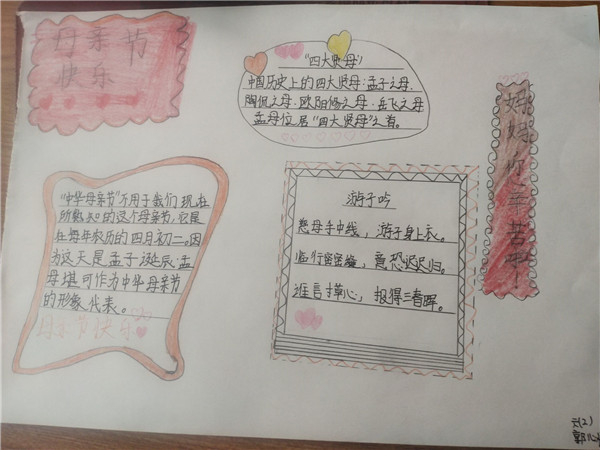 母亲节
快乐
"四大贤母"
中国历史上的四大贤母:孟子之母、
陶侃之母、欧阳修之母、岳飞之母
孟母位居"四大贤母"之首。
妈妈你辛苦啊!
"中华母亲节"不用于我们现在
所熟知的这个母亲节,它是
在每年农历的四月初二。因
为这天是孟子诞辰。孟
母堪可作为中华母亲节
的形象代表。
母亲节快乐
游子吟
慈母手中线,游子身上衣。
临行密密缝,意恐迟迟归。
谁言寸草心,报得三春晖。
(2)